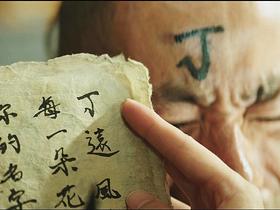 丁
丁遠風
每一朵花
你的名字